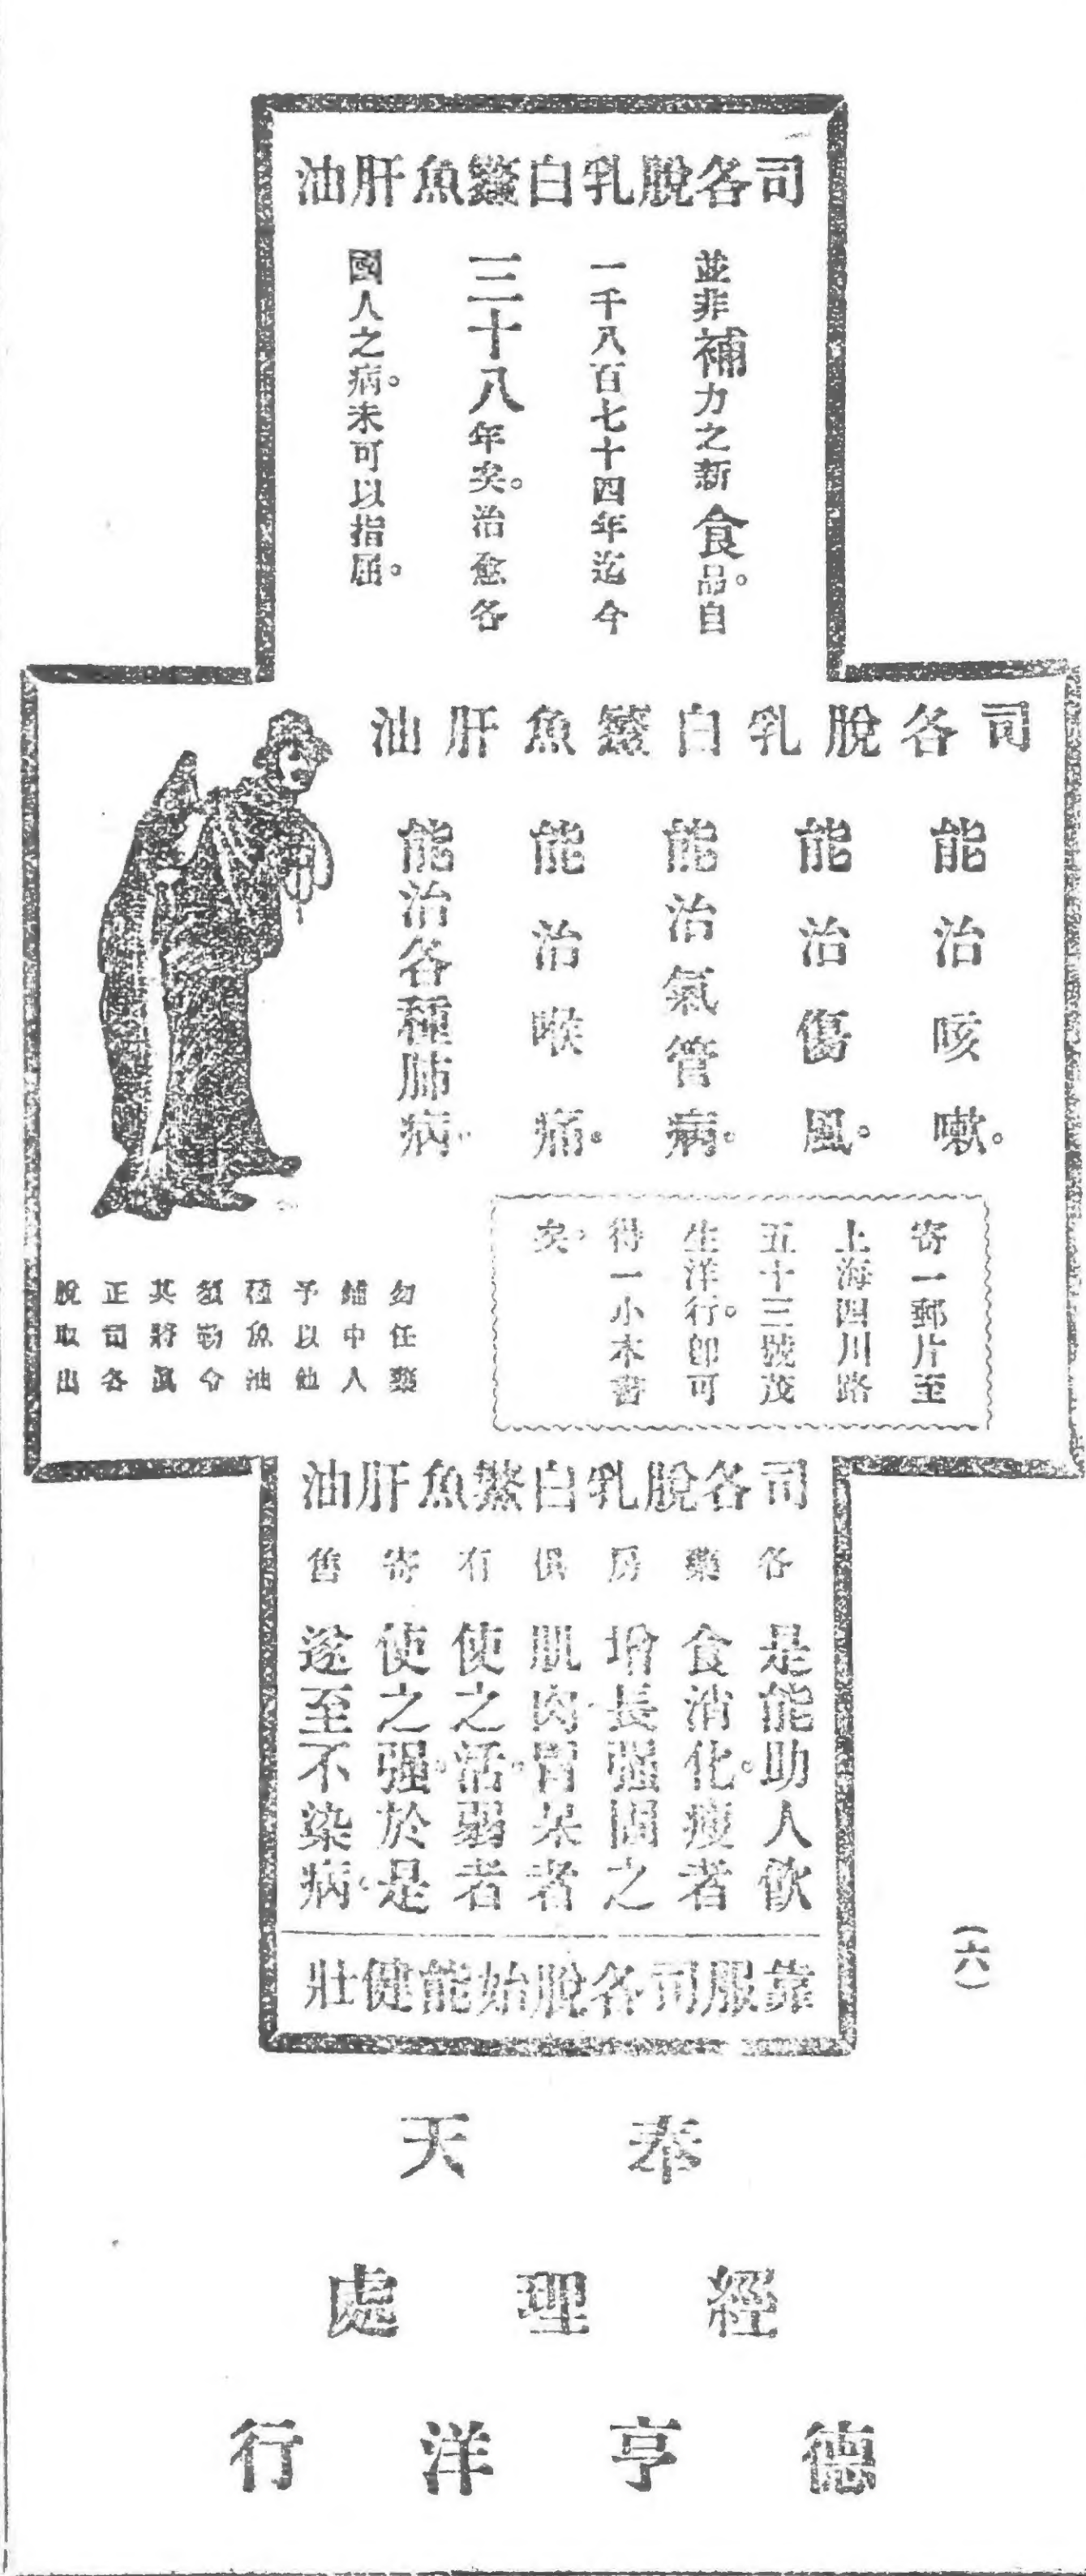 司各脫乳白鱉魚肝油
並非補力之新食品。自
一千八百七十四年迄今
三十八年矣。治愈各
國人之病。未可以指屈。
司各脫乳白鱉魚肝油
能治咳嗽。
能治傷風。
能治氣管病。
能治喉痛。
能治各種肺病。
寄一郵片至
上海四川路
五十三號茂
生洋行。卽可
得一小本書
矣。
勿任藥
鋪中人
予以他
種魚油
須勒令
其將眞
正司各
脫取出
司各脫乳白鱉魚肝油
各藥房俱有寄售
是能助人飲
食消化。瘦者
增長强固之
肌肉。胃呆者
使之活。弱者
使之强。於是
遂至不染病。
靠服司各脫始能健壯
(六)
奉天
經理處
德亨洋行